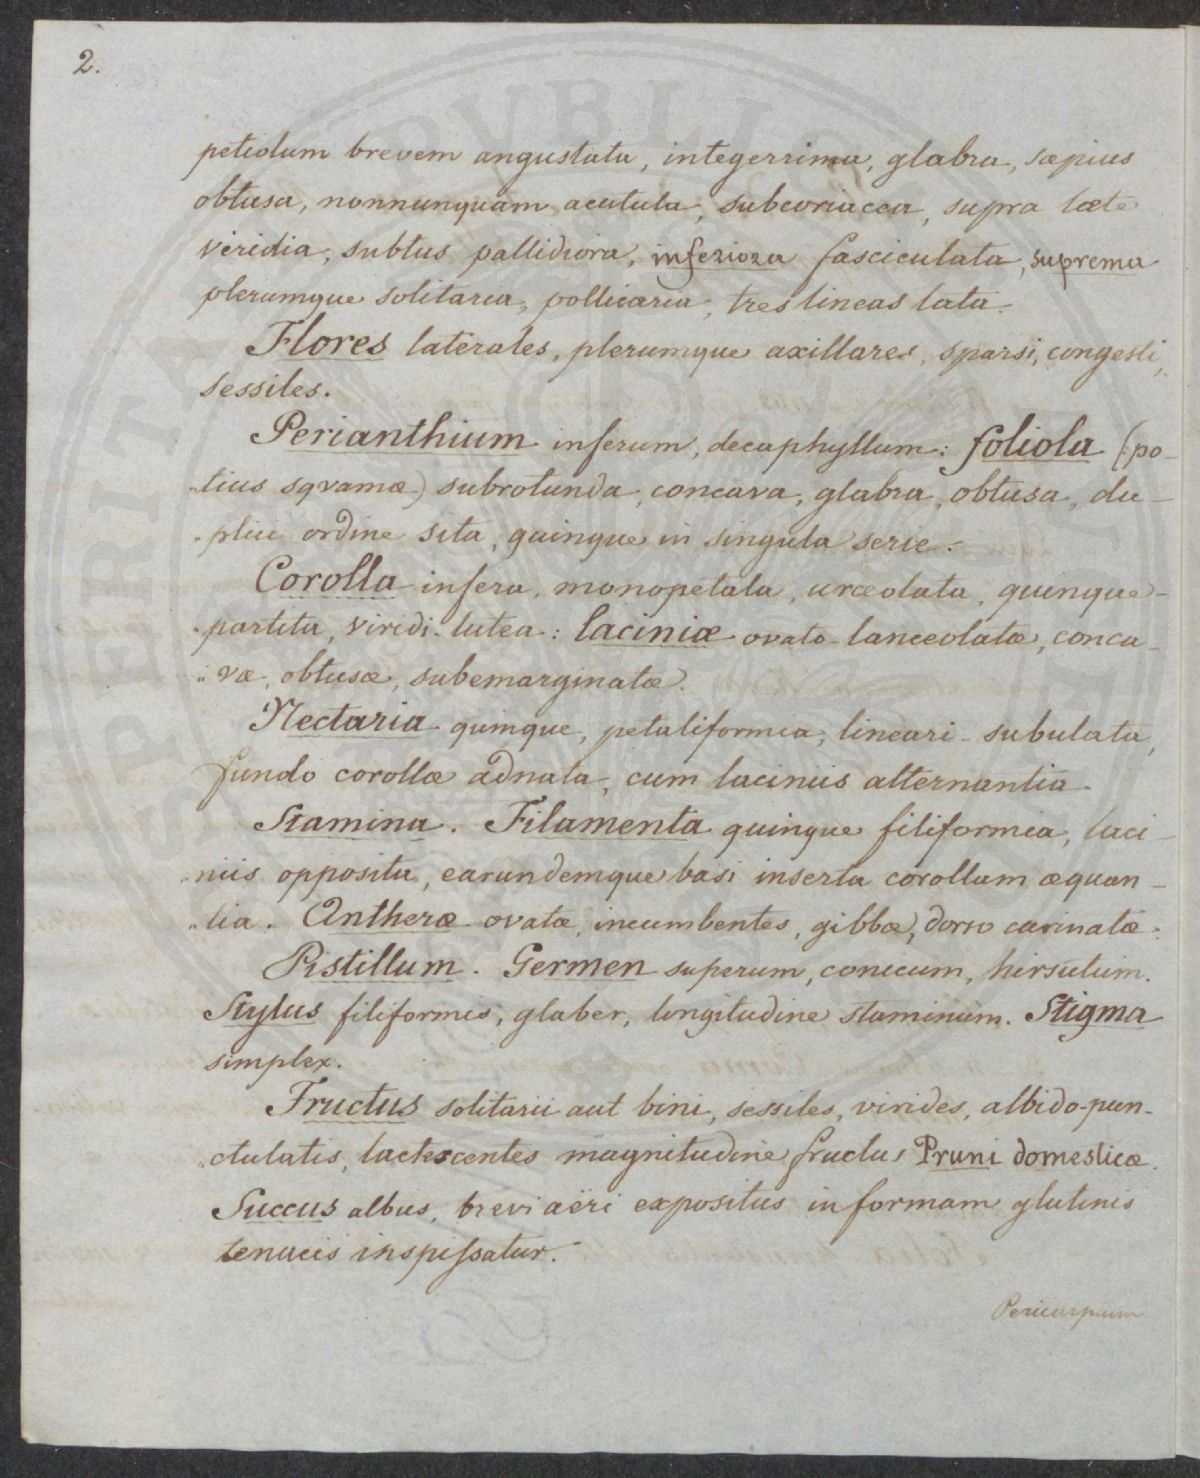 2.
petiolum brevem angustata, integerrima, glabra, sæpius
obtusa, nonnunquam acutula, subcoriacea, supra læte
viridia, subtus pallidiora, inferiora fasciculata, suprema
plerumque solitaria, pollicaria, tres lineas lata.
Flores laterales, plerumque axillares, sparsi, congesti,
sessiles.
Perianthium inferum, decaphyllum: foliola (po-
-tius sqvamæ) subrotunda, concava, glabra, obtusa, du-
-plici ordine sita, quinque in singula serie.
Corolla infera, monopetala, urceolata, quinque-
-partita, viridi-lutea: laciniæ ovato-lanceolatæ, conca-
-væ, obtusæ, subemarginatæ.
Nectaria quinque, petaliformia, lineari-subulata,
fundo corollæ adnata, cum laciniis alternantia.
Stamina. Filamenta quinque filiformia, laci-
-niis opposita, earundemque basi inserta corollam æquan-
-tia. Antheræ ovatæ, incumbentes, gibbæ, dorso carinatæ.
Pistillum. Germen superum, conicum, hirsutum.
Stylus filiformis, glaber, longitudine staminum. Stigma
simplex.
Fructus solitarii aut bini, sessiles, virides, albido-pun-
-ctulatis, lactescentes magnitudine fructus Pruni domesticæ.
Succus albus, brevi aëri expositus in formam glutinis
tenacis inspissatur.
Pericarpium
SUPERIT
PUBLIC